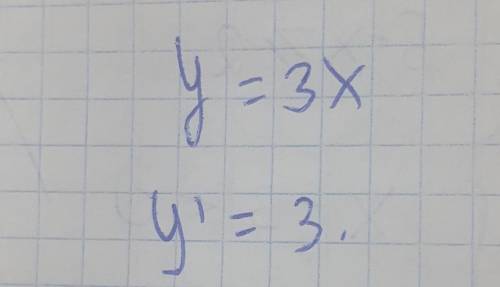 y = 3x
y' = 3.